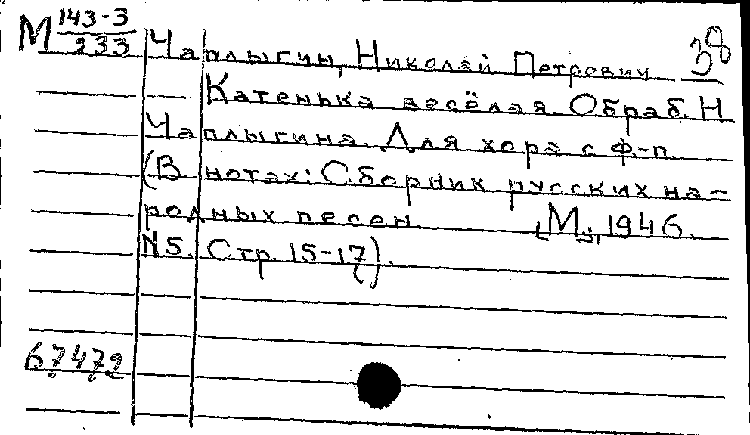 М 143-3/233 Чаплыгин, Николай Петрович 38
Катенька весёлая. Обраб. Н.
Чаплыгина. Для хора с ф.-п.
(В нотах: Сборник русских на-
родных песен. [М.], 1946.
N5. Стр. 15-17).
67479